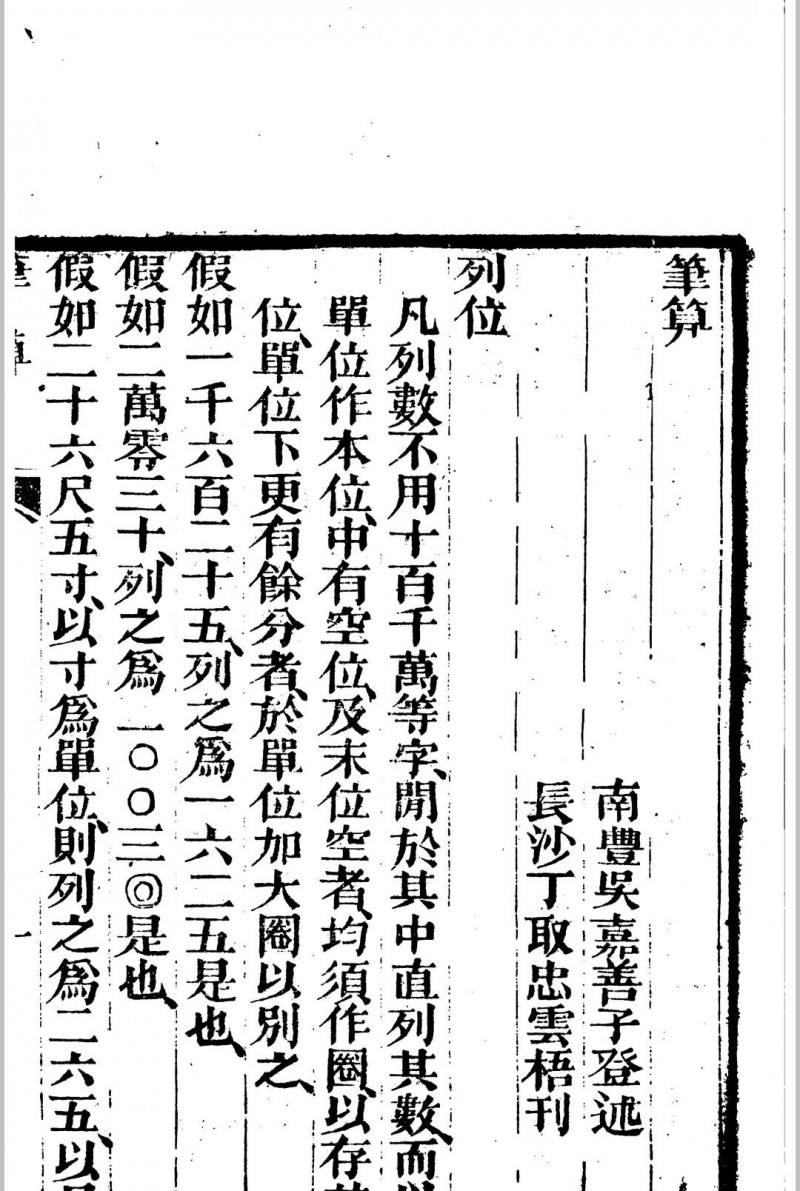 筆算
南豐吳嘉善子登述
長沙丁取忠雲梧刊
列位
凡列數不用十百千萬等字、閒於其中直列其數、而
單位作本位、中有空位、及末位空者、均須作圈、以存
位、單位下更有餘分者、於單位加大圈以別之、
假如一千六百二十五、列之爲一六二五是也、
假如二萬零三十、列之爲一〇〇三◎是也、
假如二十六尺五寸、以寸爲單位、則列之爲二六五、以
一